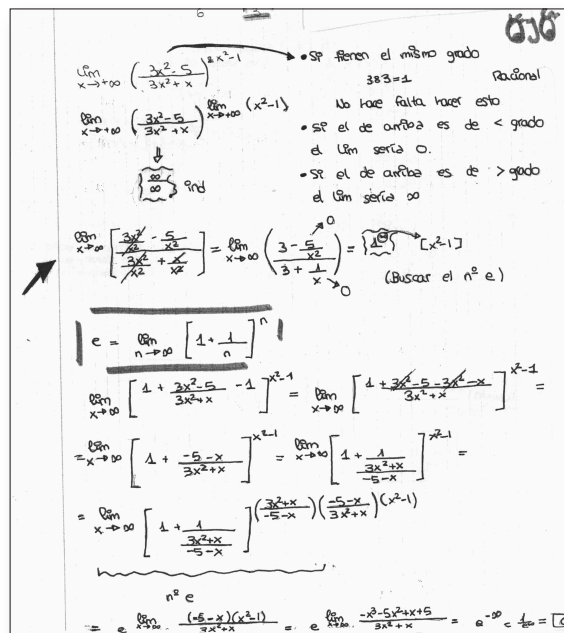 6
lim x→+∞ (3x²-5 / 3x²+x)^(x²-1)
• Si tienen el mismo grado
3&3=1 Racional
No hace falta hacer esto
lim x→+∞ (3x²-5 / 3x²+x)^(lim x→+∞ (x²-1))
• Si el de arriba es de < grado
el lim sería 0.
⇓
{∞/∞} ind
• Si el de arriba es de > grado
el lim sería ∞
lim x→∞ [(3x²/x² - 5/x²) / (3x²/x² + x/x²)] = lim x→∞ ((3 - 5/x²) / (3 + 1/x)) = {1^∞} [x²-1]
0
0
(Buscar el nº e)
e = lim n→∞ [1 + 1/n]^n
lim x→∞ [1 + (3x²-5 / 3x²+x) - 1]^(x²-1) = lim x→∞ [1 + (3x²-5-3x²-x / 3x²+x)]^(x²-1) =
= lim x→∞ [1 + (-5-x / 3x²+x)]^(x²-1) = lim x→∞ [1 + 1/(3x²+x / -5-x)]^(x²-1) =
= lim x→∞ [1 + 1/(3x²+x / -5-x)]^((3x²+x / -5-x)(-5-x / 3x²+x)(x²-1))
nº e
= e^(lim x→∞ (-5-x)(x²-1) / 3x²+x) = e^(lim x→∞ -x³-5x²+x+5 / 3x²+x) = e^-∞ = 1/e^∞ =